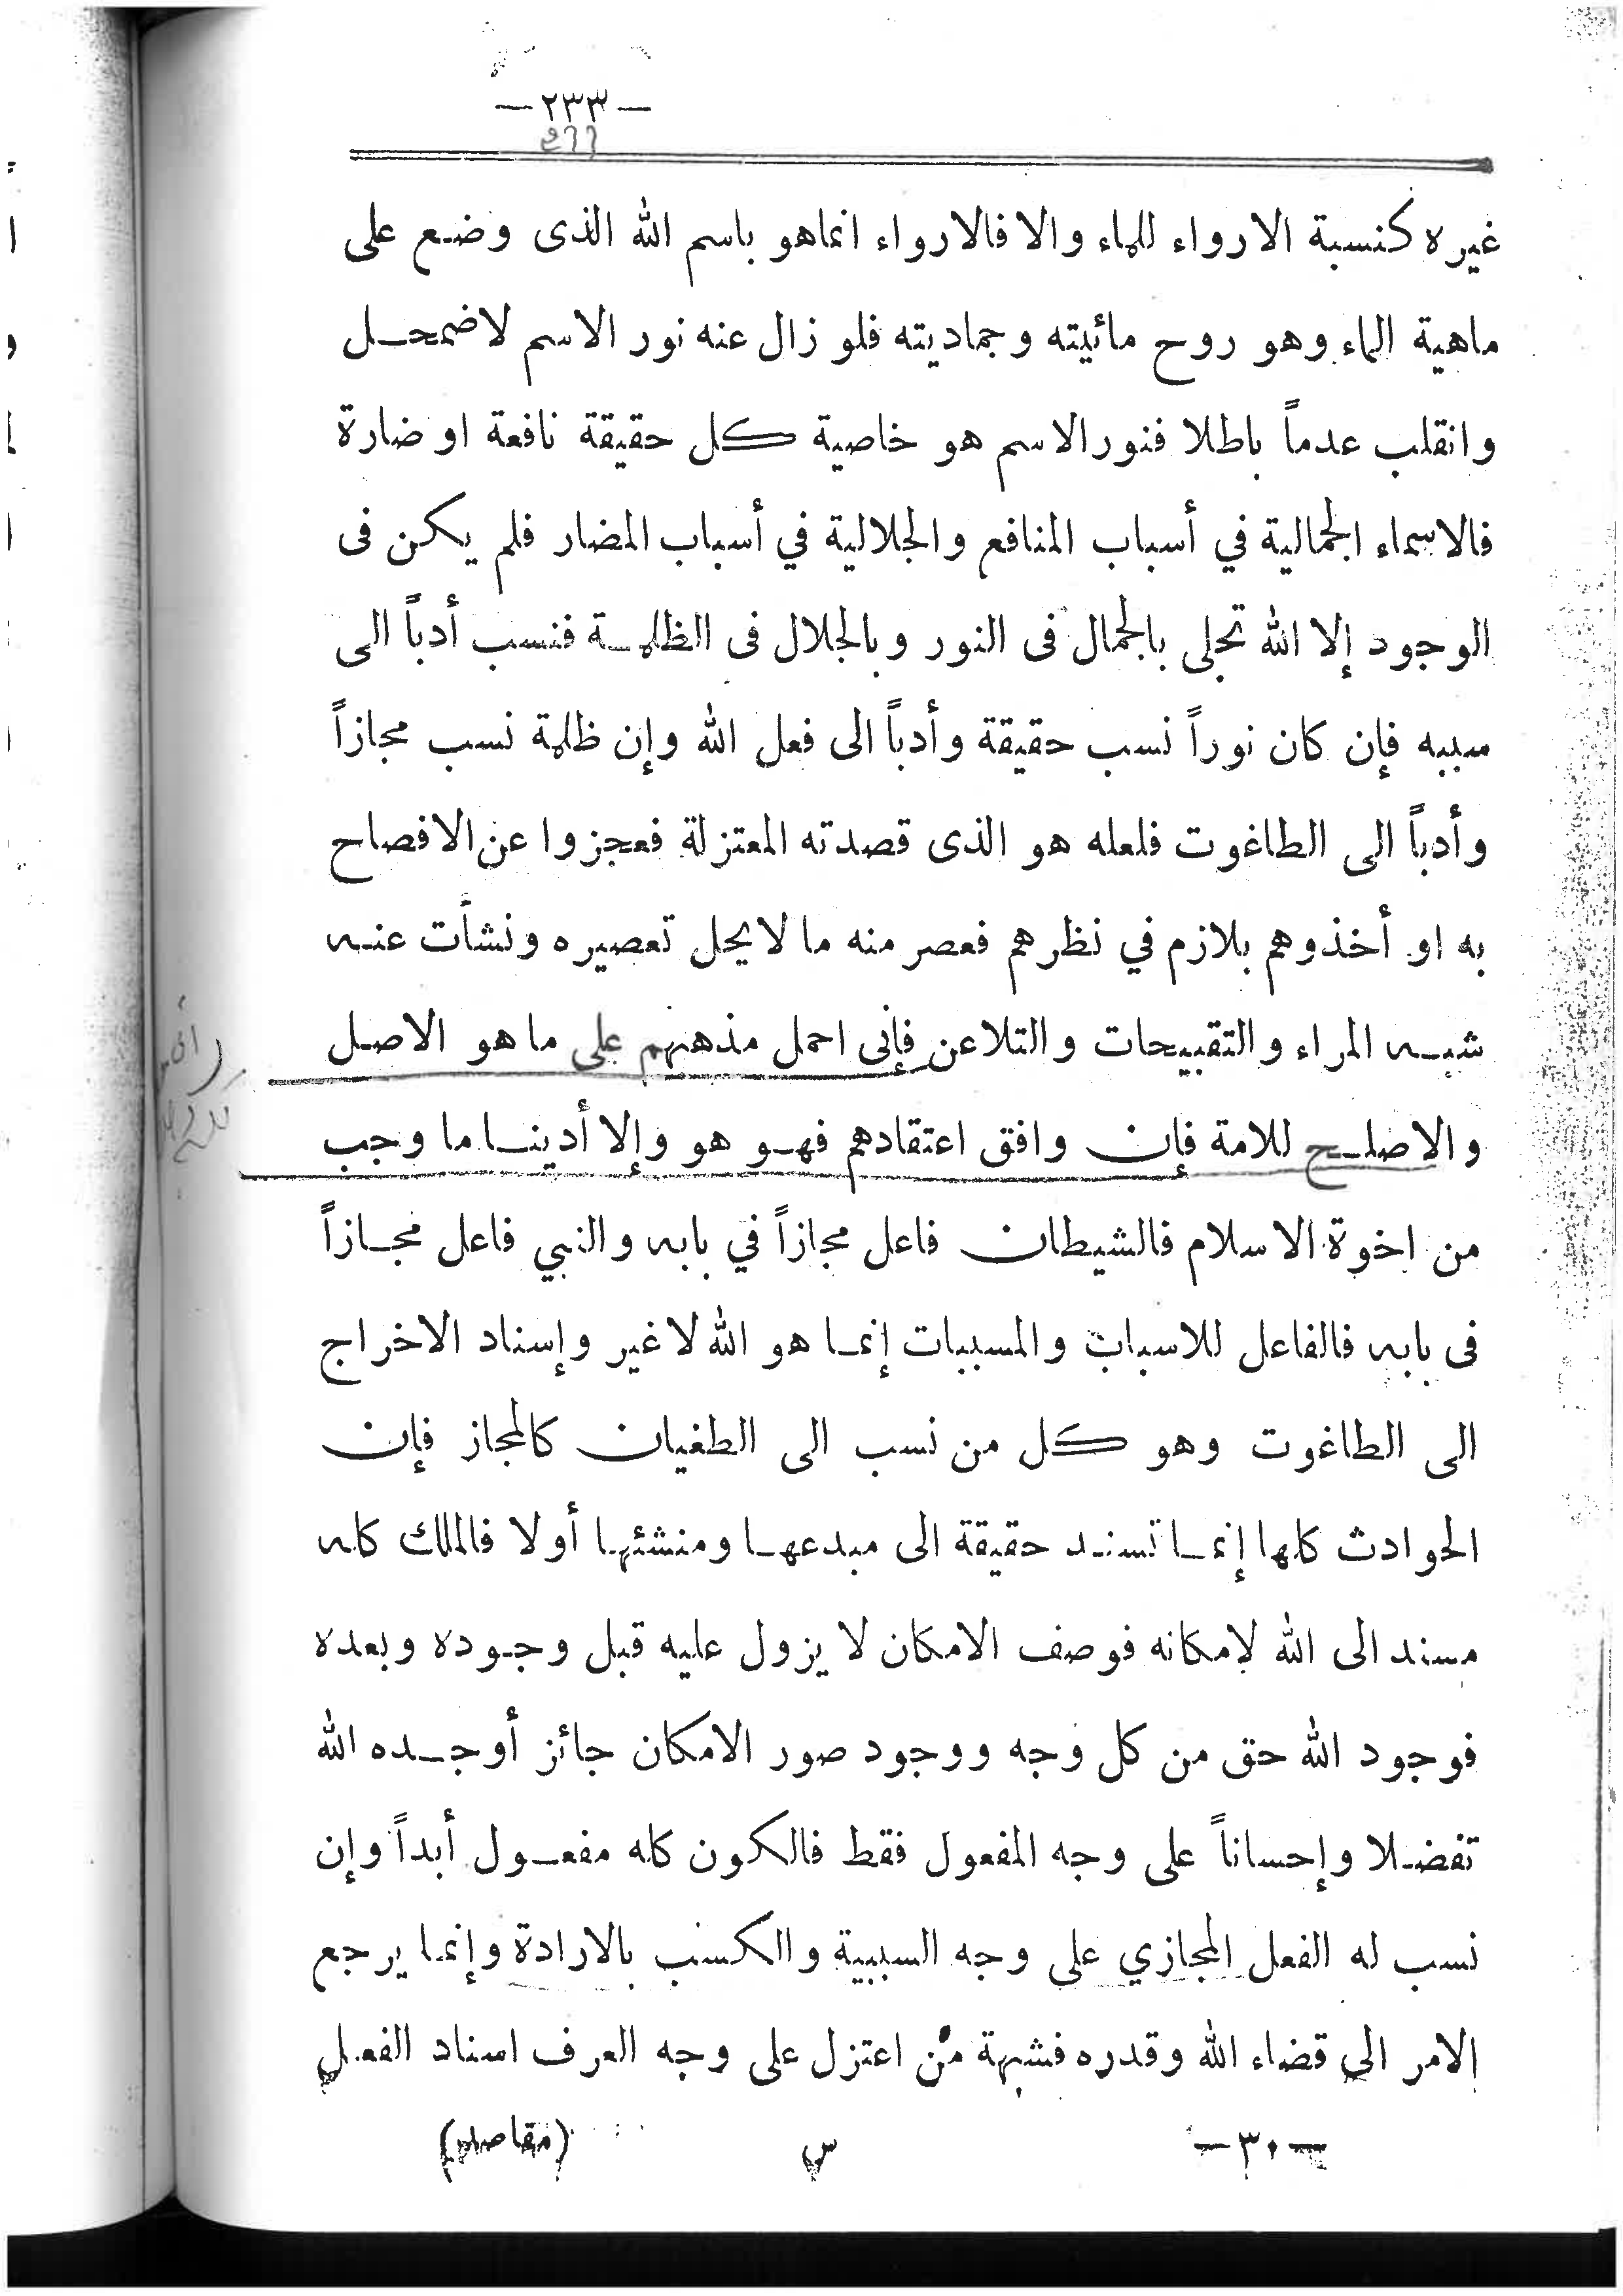 —٢٣٣—
233
غيره كنسبة الارواء للماء والا فالارواء انماهو باسم الله الذى وضع على
ماهية الماء وهو روح مائيته وجماديته فلو زال عنه نور الاسم لاضمحل
وانقلب عدماً باطلا فنور الاسم هو خاصية كل حقيقة نافعة او ضارة
فالاسماء الجمالية في أسباب المنافع والجلالية في أسباب المضار فلم يكن فى
الوجود إلا الله تجلى بالجمال فى النور وبالجلال فى الظلمة فنسب أدباً الى
سببه فإن كان نوراً نسب حقيقة وأدباً الى فعل الله وإن ظلمة نسب مجازاً
وأدباً الى الطاغوت فلعله هو الذى قصدته المعتزلة فعجزوا عن الافصاح
به او أخذوهم بلازم في نظرهم فعصر منه ما لا يحل تعصيره ونشأت عنه
شبه المراء والتقبيحات والتلاعن فإنى احمل مذهبهم على ما هو الاصل
والاصلح للامة فإن وافق اعتقادهم فهو هو وإلا أدينا ما وجب
من اخوة الاسلام فالشيطان فاعل مجازاً في بابه والنبي فاعل مجازاً
فى بابه فالفاعل للاسباب والمسببات إنما هو الله لا غير وإسناد الاخراج
الى الطاغوت وهو كل من نسب الى الطغيان كالمجاز فإن
الحوادث كلها إنما تسند حقيقة الى مبدعها ومنشئها أولا فالملك كله
مسند الى الله لإمكانه فوصف الامكان لا يزول عليه قبل وجوده وبعده
فوجود الله حق من كل وجه ووجود صور الامكان جائز أوجده الله
تفضلا وإحساناً على وجه المفعول فقط فالكون كله مفعول أبداً وإن
نسب له الفعل المجازي على وجه السببية والكسب بالارادة وإنما يرجع
الامر الى قضاء الله وقدره فشبهة من اعتزل على وجه العرف اسناد الفعل
—٣٠— س (مقاصد)